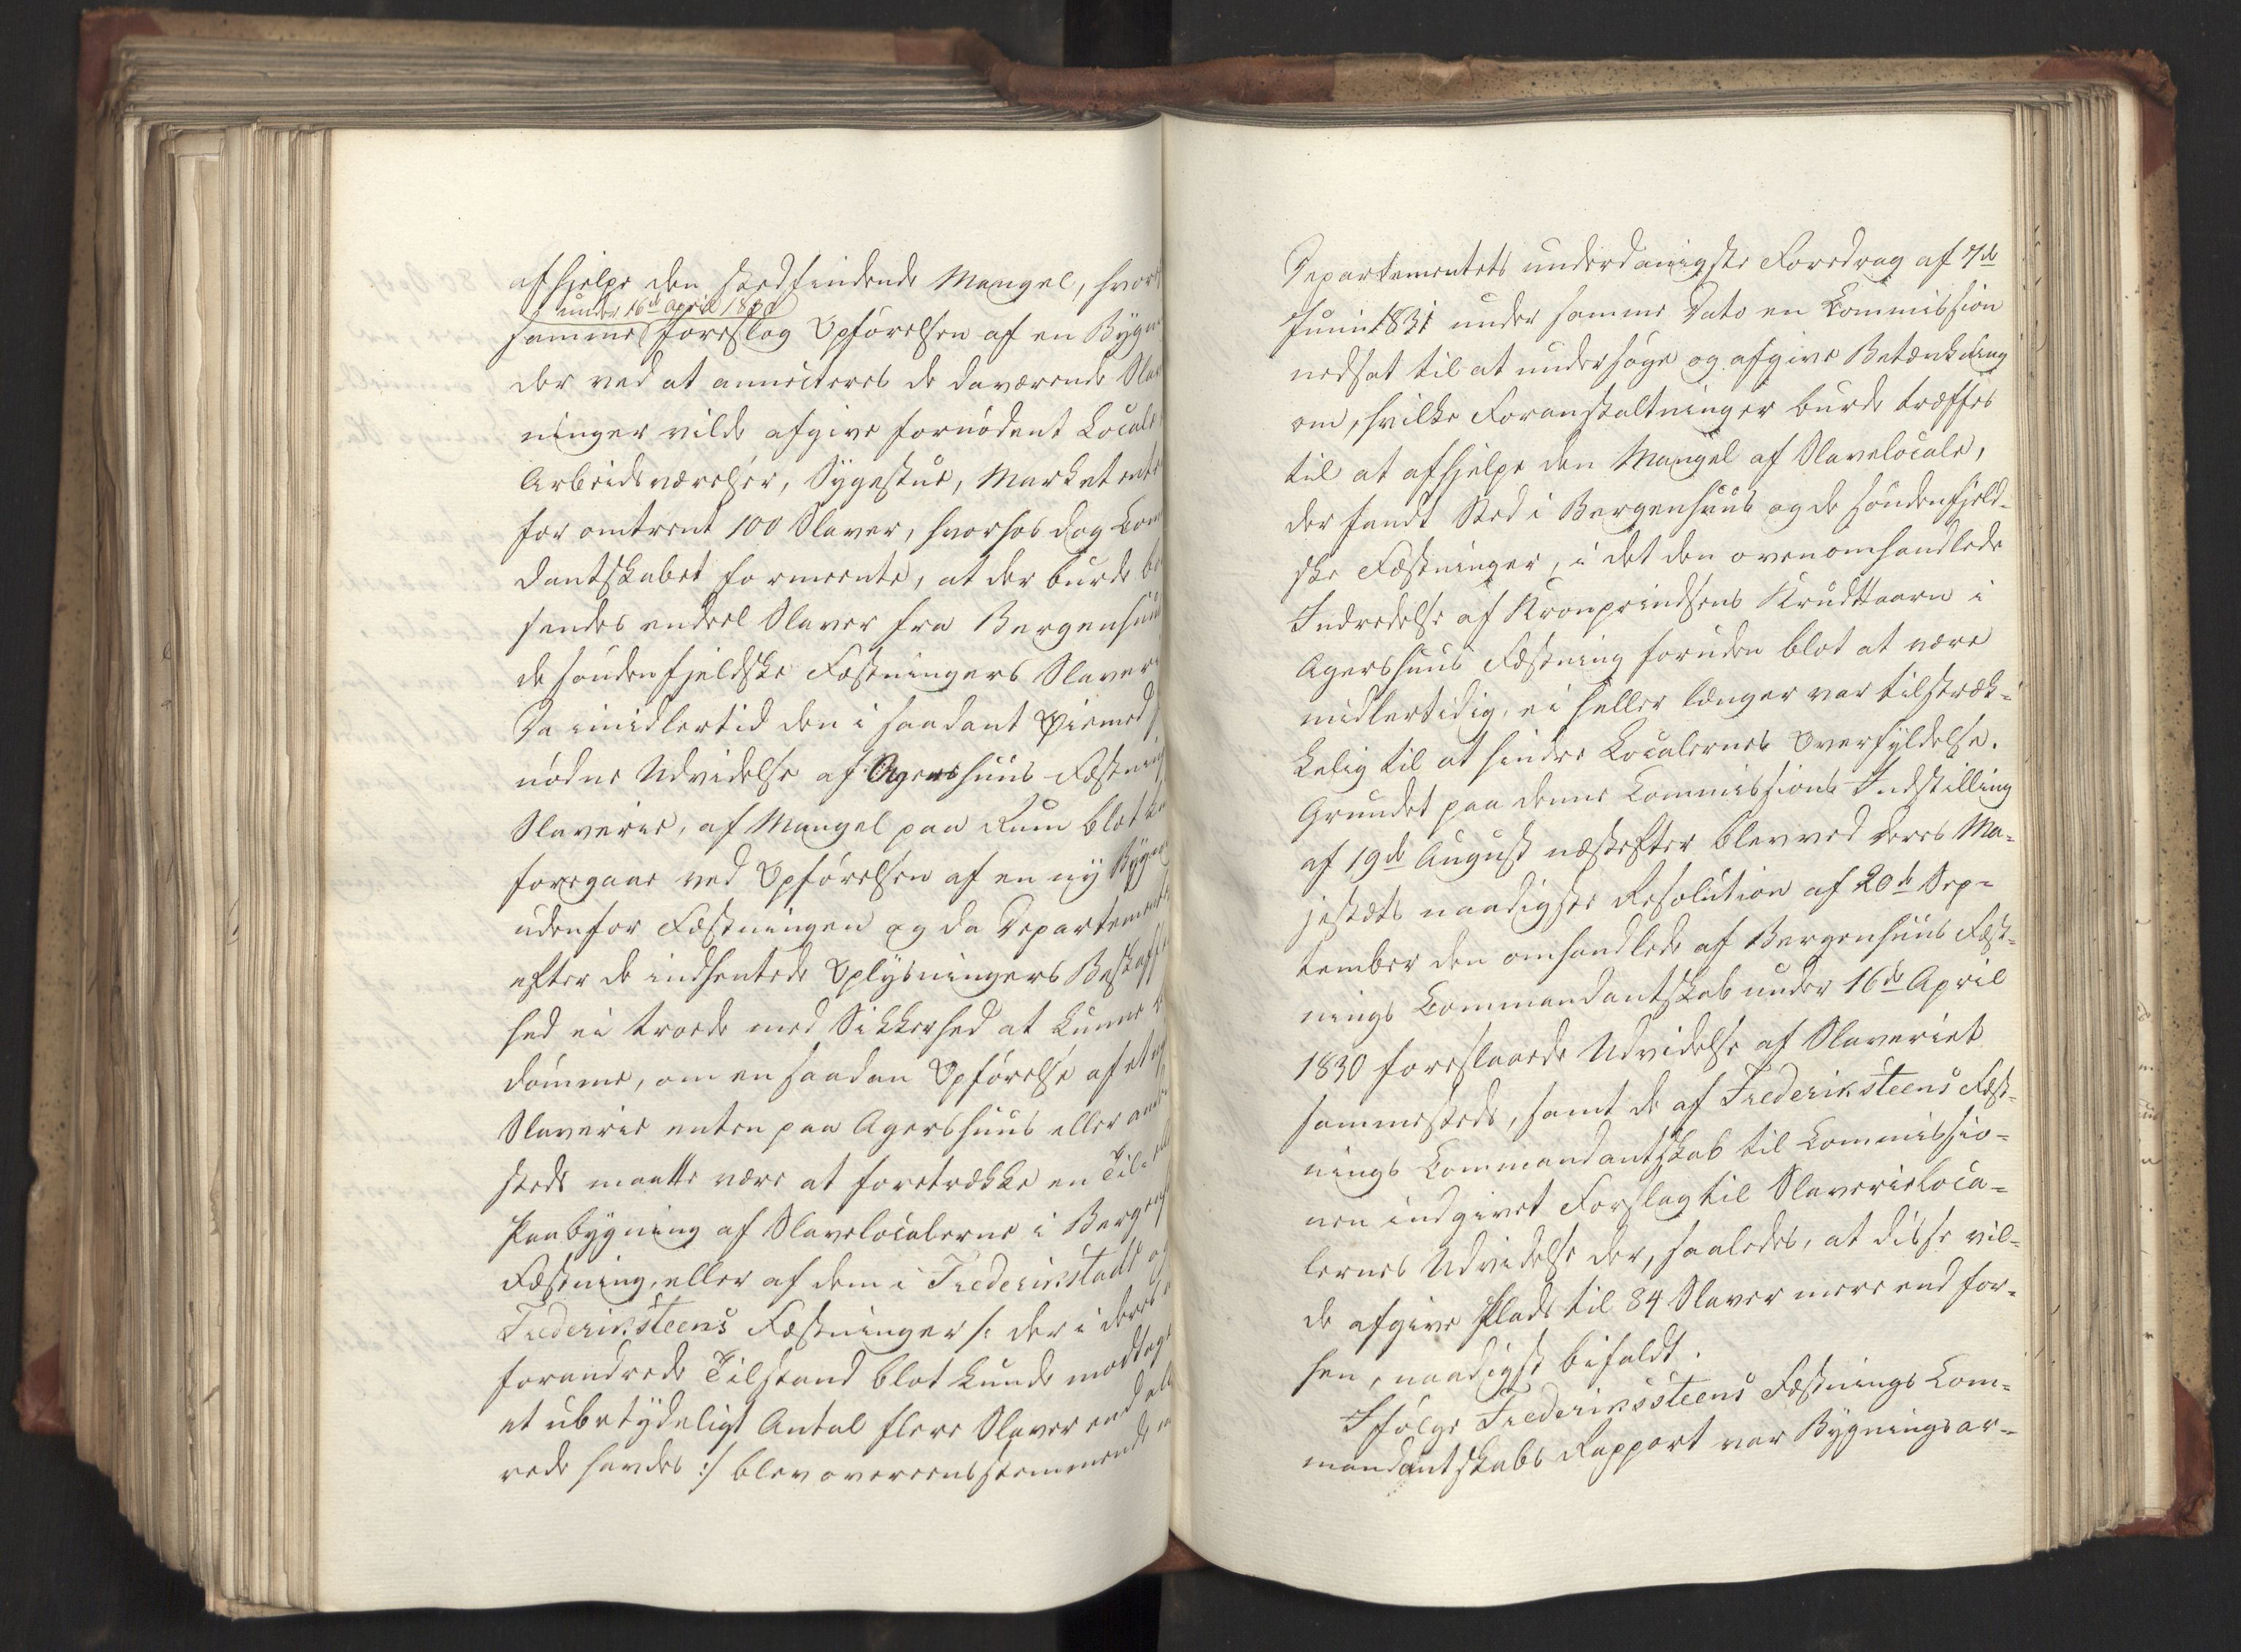 afhjelpe den stedfindende Mangel, hvor
under 16de April 1830
samme foreslog Opførelsen af en Bygn
der ved at annecteres de daværende Slav
ninger vilde afgive fornødent Locale
Arbeidsværelser, Sygestue, Marketent
for omtrent 100 Slaver, hvorhos dog Com
dantskabet formeente, at der burde
sendes endeel Slaver fra Bergenhuu
de søndenfjeldske Fæstningers Slaver
Da imidlertid den i saadant Øiemed
nødne Udvidelse af Agershuus Fæstning
Slaverie, af Mangel paa Rum blot
foregaae ved Opførelsen af en ny Bygn
udenfor Fæstningen og da Departemente
efter de indhentede Oplysningers Beskaffe
hed ei troede med Sikkerhed at kunne
dømme, om en saadan Opførelse af et
Slaverie enten paa Agershuus eller and
steds maatte være at foretrække en Til-
Paabygning af Slavelocalerne i Berge
Fæstning, eller af dem i Frederikstads og
Frederiksteens Fæstninger /: der i deres
forandrede Tilstand blot kunde modtage
et ubetydeligt Antal flere Slaver end alle
rede havdes :/ blev overeensstemmende
Departementets underdanigste Foredrag af 7de
Junii 1831 under samme Dato en Commission
nedsat til at undersøge og afgive Betænkning
om, hvilke Foranstaltninger burde træffes
til at afhjelpe den Mangel af Slavelocale,
der fandt Sted i Bergenhuus og de søndenfjeld-
ske Fæstninger, i det den ovenomhandlede
Indredelse af Kronprindsens Krudttaarn i
Agershuus Fæstning foruden blot at være
midlertidig, ei heller længer var tilstræk-
kelig til at hindre Localernes Overfyldelse.
Grundet paa denne Commissions Indstilling
af 19de August næstefter blev ved Deres Ma-
jestæts naadigste Resolution af 20de Sep-
tember den omhandlede af Bergenhuus Fæst-
nings Commandantskab under 16de April
1830 foreslaaede Udvidelse af Slaveriet
sammesteds, samt de af Frederiksteens Fæst-
nings Commandantskab til Commissio-
nen indgivet Forslag til Slaverieloca-
lernes Udvidelse der, saaledes, at disse vil-
de afgive Plads til 84 Slaver mere end før-
hen, naadigst bifaldt.
Ifølge Frederikssteens Fæstnings Com-
mandantskabs Rapport var Bygningsar-